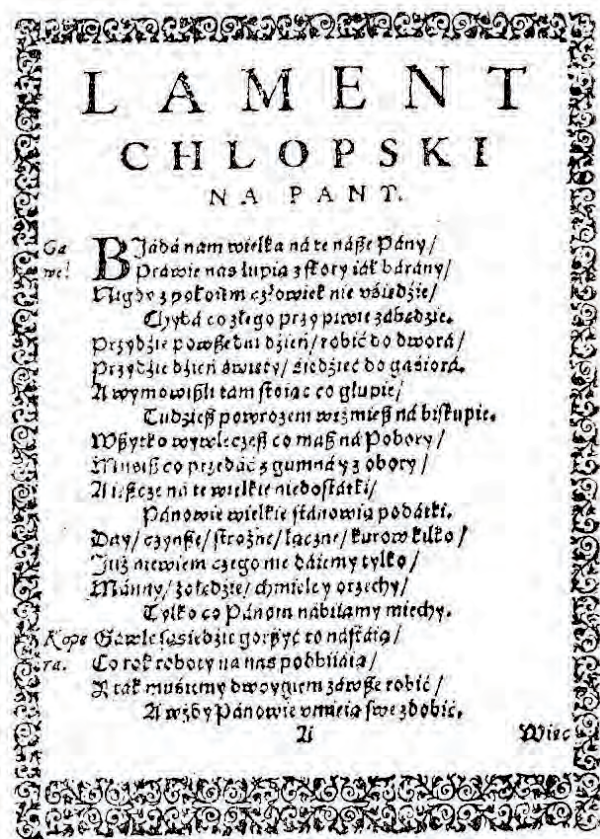 LAMENT
CHLOPSKI
NA PANY.
Gaweł
BJádá nam wielka ná te náße Pány/
Práwie nas łupią z skory iák bárány/
Nigdy z pokoiem człowiek nie vśiedźie/
Chybá co złego przy piwie zábędzie.
Przydźie powßedni dźień/ robić do dworá/
Przydźie dźień święty/ śiedźieć do gąśiorá.
A wymowißli tam stoiąc co głupie/
Tudzieß powrozem weźmieß ná biskupie.
Wßytko wywleczeß co maß ná Pobory/
Muśiß co przedáć z gumná y z obory/
A ießcze ná te wielkie niedostátki/
Pánowie wielkie stánowią podátki.
Day/ czynße/ strożne/ łączne/ kurow kilko/
Już niewiem czego nie dáiemy tylko/
Mánny/ żołędźie/ chmiele y orzechy/
Tylko co Pánom nábiiamy miechy.
Kopera.
Gáwle sąśiedźie gorßyć to nástáią/
Co rok roboty na nas podbiiáią/
A ták muśiemy dwoygiem záwße robić/
A wżdy Pánowie vmieią swe zdobić.
A
Więc